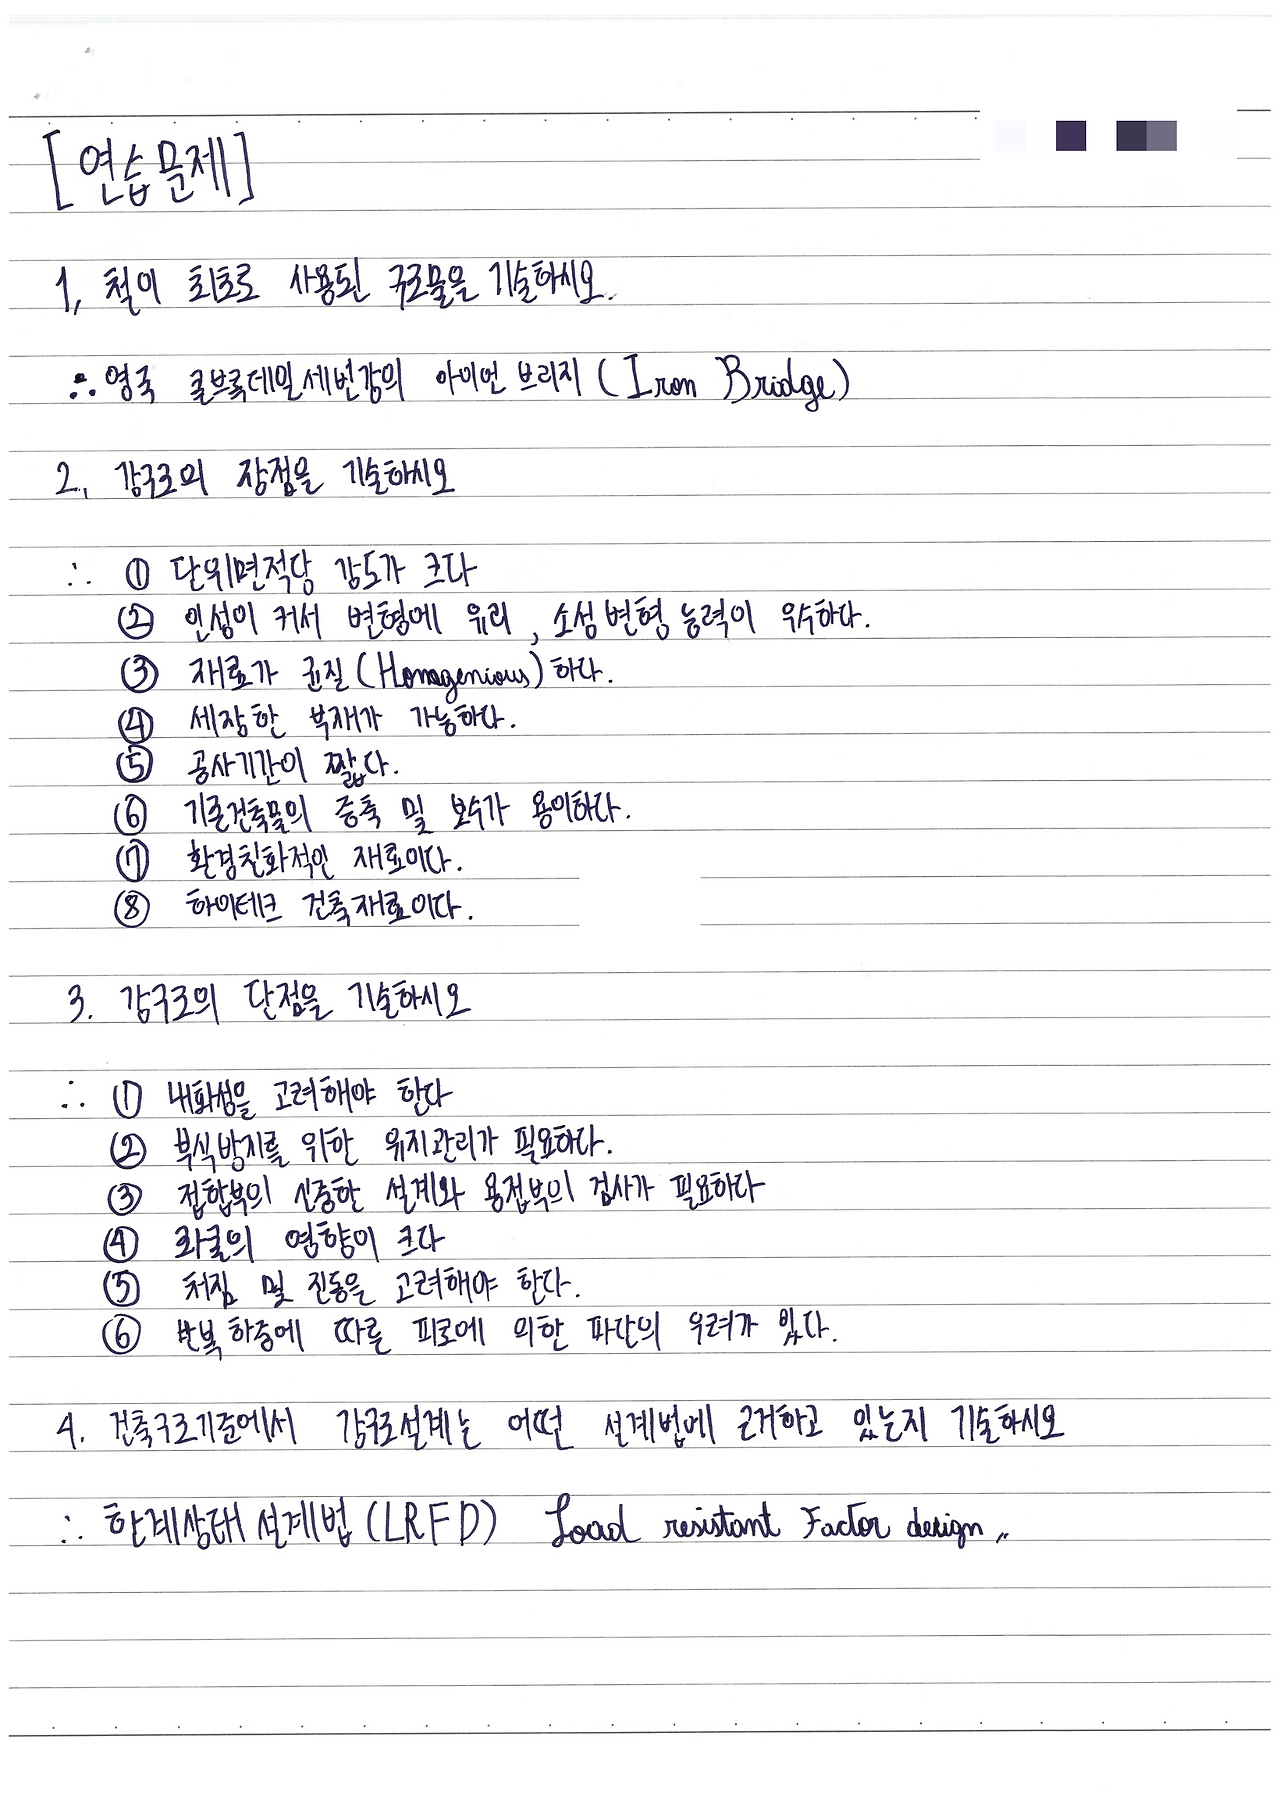 [연습문제]
1, 철이 최초로 사용된 구조물을 기술하시오.
∴ 영국 콜브룩데일세번강의 아이언 브리지 (Iron Bridge)
2, 강구조의 장점을 기술하시오
∴ ① 단위면적당 강도가 크다
② 인성이 커서 변형에 유리, 소성변형 능력이 우수하다.
③ 재료가 균질(Homogenious)하다.
④ 세장한 부재가 가능하다.
⑤ 공사기간이 짧다.
⑥ 기존건축물의 증축 및 보수가 용이하다.
⑦ 환경친화적인 재료이다.
⑧ 하이테크 건축재료이다.
3. 강구조의 단점을 기술하시오
∴ ① 내화성을 고려해야 한다
② 부식방지를 위한 유지관리가 필요하다.
③ 접합부의 신중한 설계와 용접부의 검사가 필요하다
④ 좌굴의 영향이 크다
⑤ 처짐 및 진동을 고려해야 한다.
⑥ 반복하중에 따를 피로에 의한 파단의 우려가 있다.
4. 건축구조기준에서 강구조설계는 어떤 설계법에 근거하고 있는지 기술하시오
∴ 한계상태설계법(LRFD) Load resistant Factor design 〃